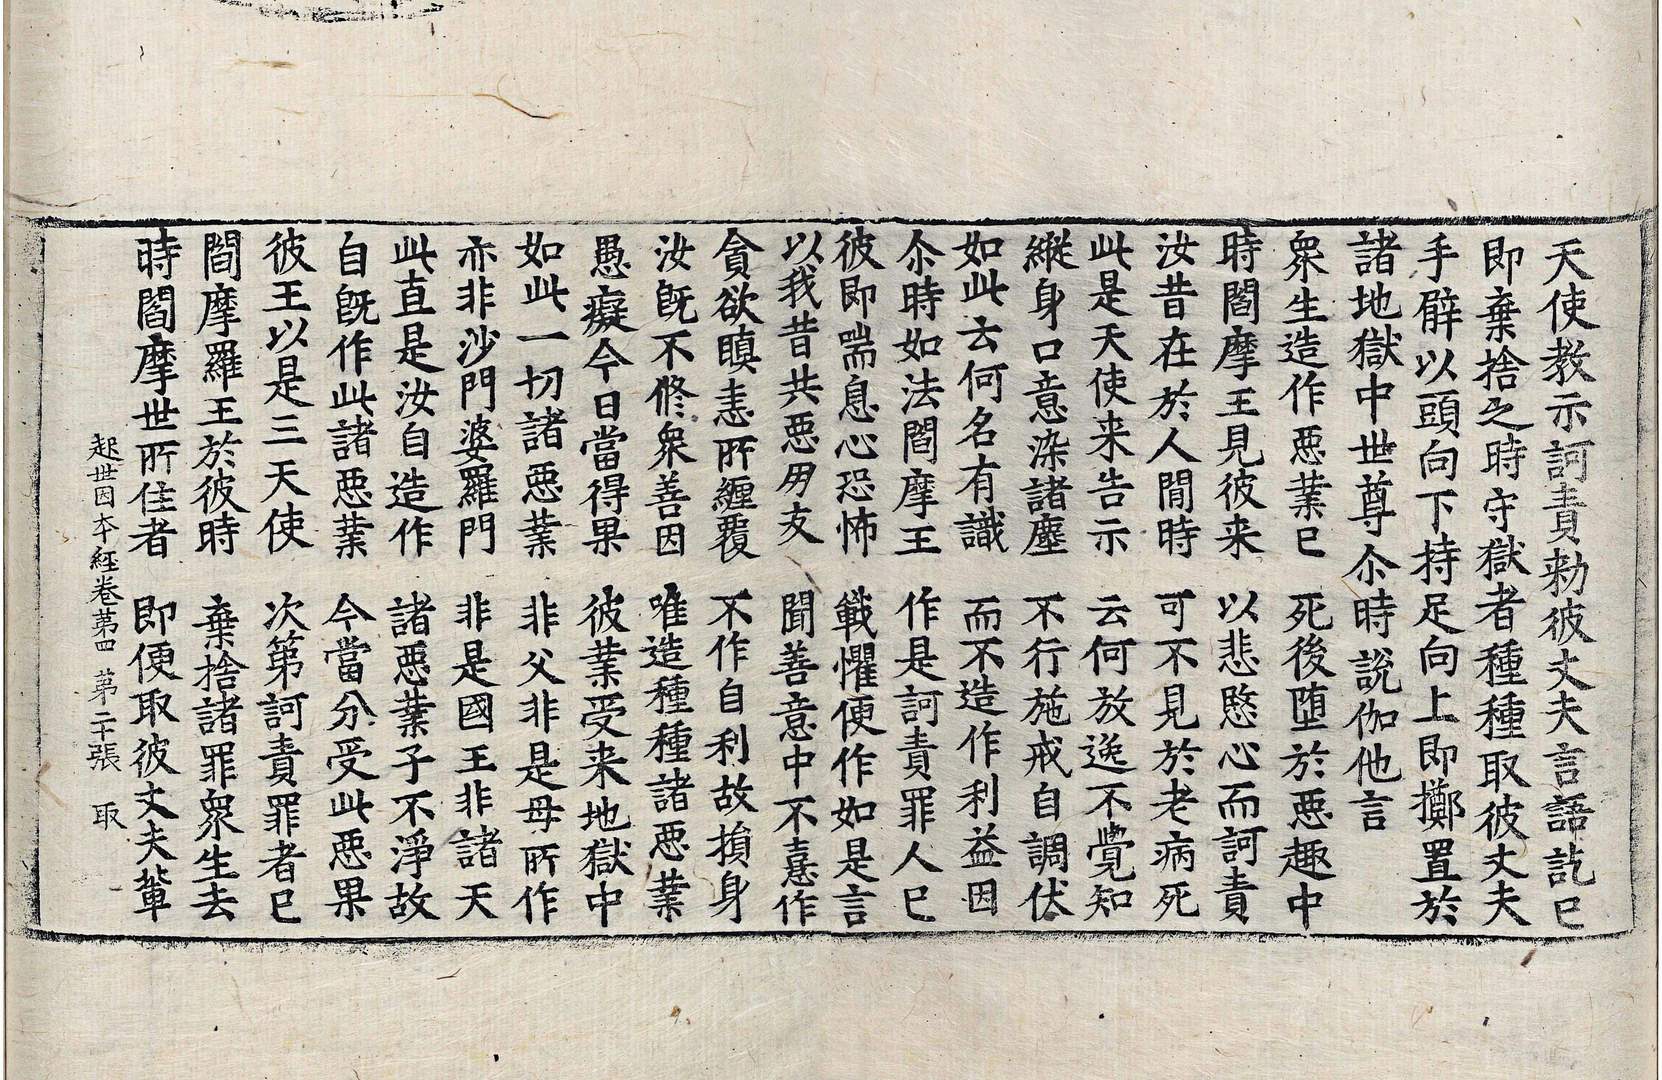 天使教示訶責勑彼丈夫言語訖已
即棄捨之時守獄者種種取彼丈夫
手臂以頭向下持足向上即擲置於
諸地獄中世尊尒時說伽他言
衆生造作惡業已 死後墮於惡趣中
時閻摩王見彼来 以悲愍心而訶責
汝昔在於人閒時 可不見於老病死
此是天使来告示 云何放逸不覺知
縱身口意染諸塵 不行施戒自調伏
如此云何名有識 而不造作利益因
尒時如法閻摩王 作是訶責罪人已
彼即喘息心恐怖 戰懼便作如是言
以我昔共惡朋友 聞善意中不憙作
貪欲瞋恚所纏覆 不作自利故損身
汝旣不修衆善因 唯造種種諸惡業
愚癡今日當得果 彼業受来地獄中
如此一切諸惡業 非父非是母所作
亦非沙門婆羅門 非是國王非諸天
此直是汝自造作 諸惡業子不淨故
自旣作此諸惡業 今當分受此惡果
彼王以是三天使 次第訶責罪者已
閻摩羅王於彼時 棄捨諸罪衆生去
時閻摩世所住者 即便取彼丈夫輩
起世因本經卷第四 第二十張 取